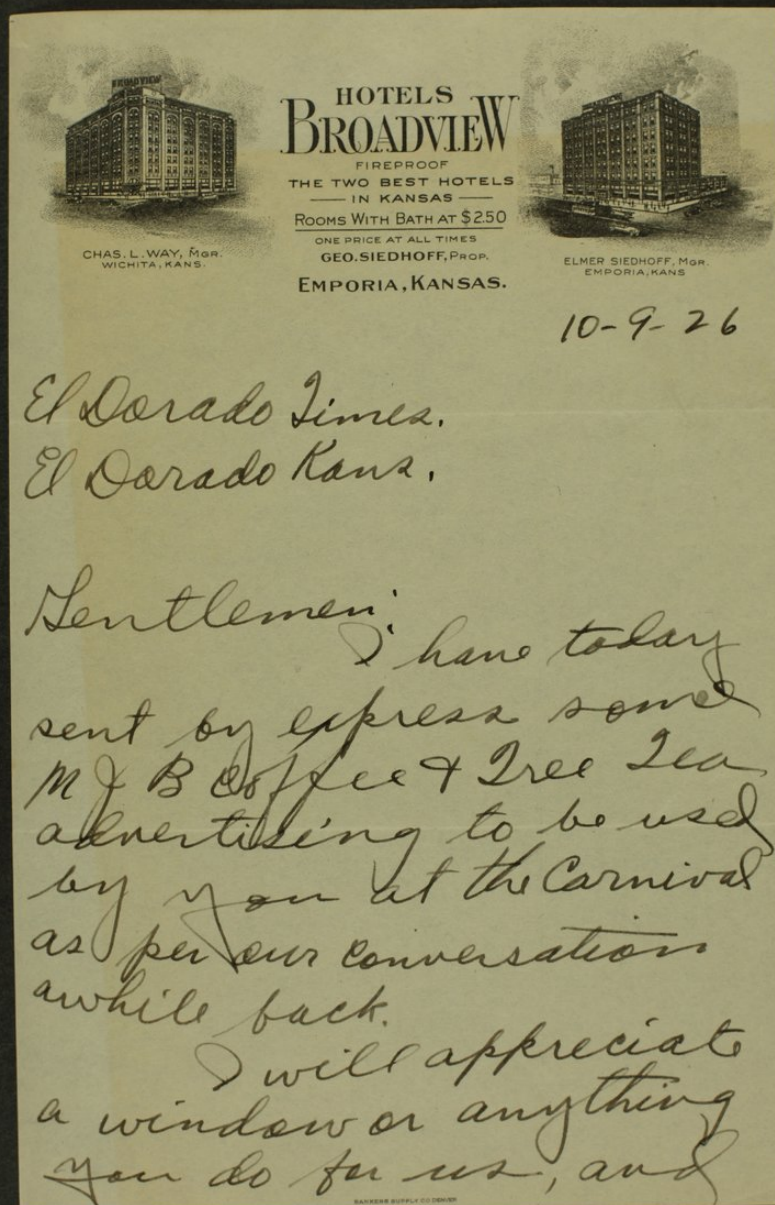 BROADVIEW
HOTELS
BROADVIEW
FIREPROOF
THE TWO BEST HOTELS
IN KANSAS
ROOMS WITH BATH AT $2.50
ONE PRICE AT ALL TIMES
GEO. SIEDHOFF, PROP.
EMPORIA, KANSAS.
CHAS. L. WAY, MGR.
WICHITA, KANS.
ELMER SIEDHOFF, MGR.
EMPORIA, KANS
10-9-26
El Dorado Times.
El Dorado Kans.
Gentlemen:
I have today
sent by express some
M J B Coffee & Tree Tea
advertising to be used
by you at the Carnival
as per our conversation
awhile back.
I will appreciate
a window or anything
you do for us, and
BANKERS SUPPLY CO DENVER